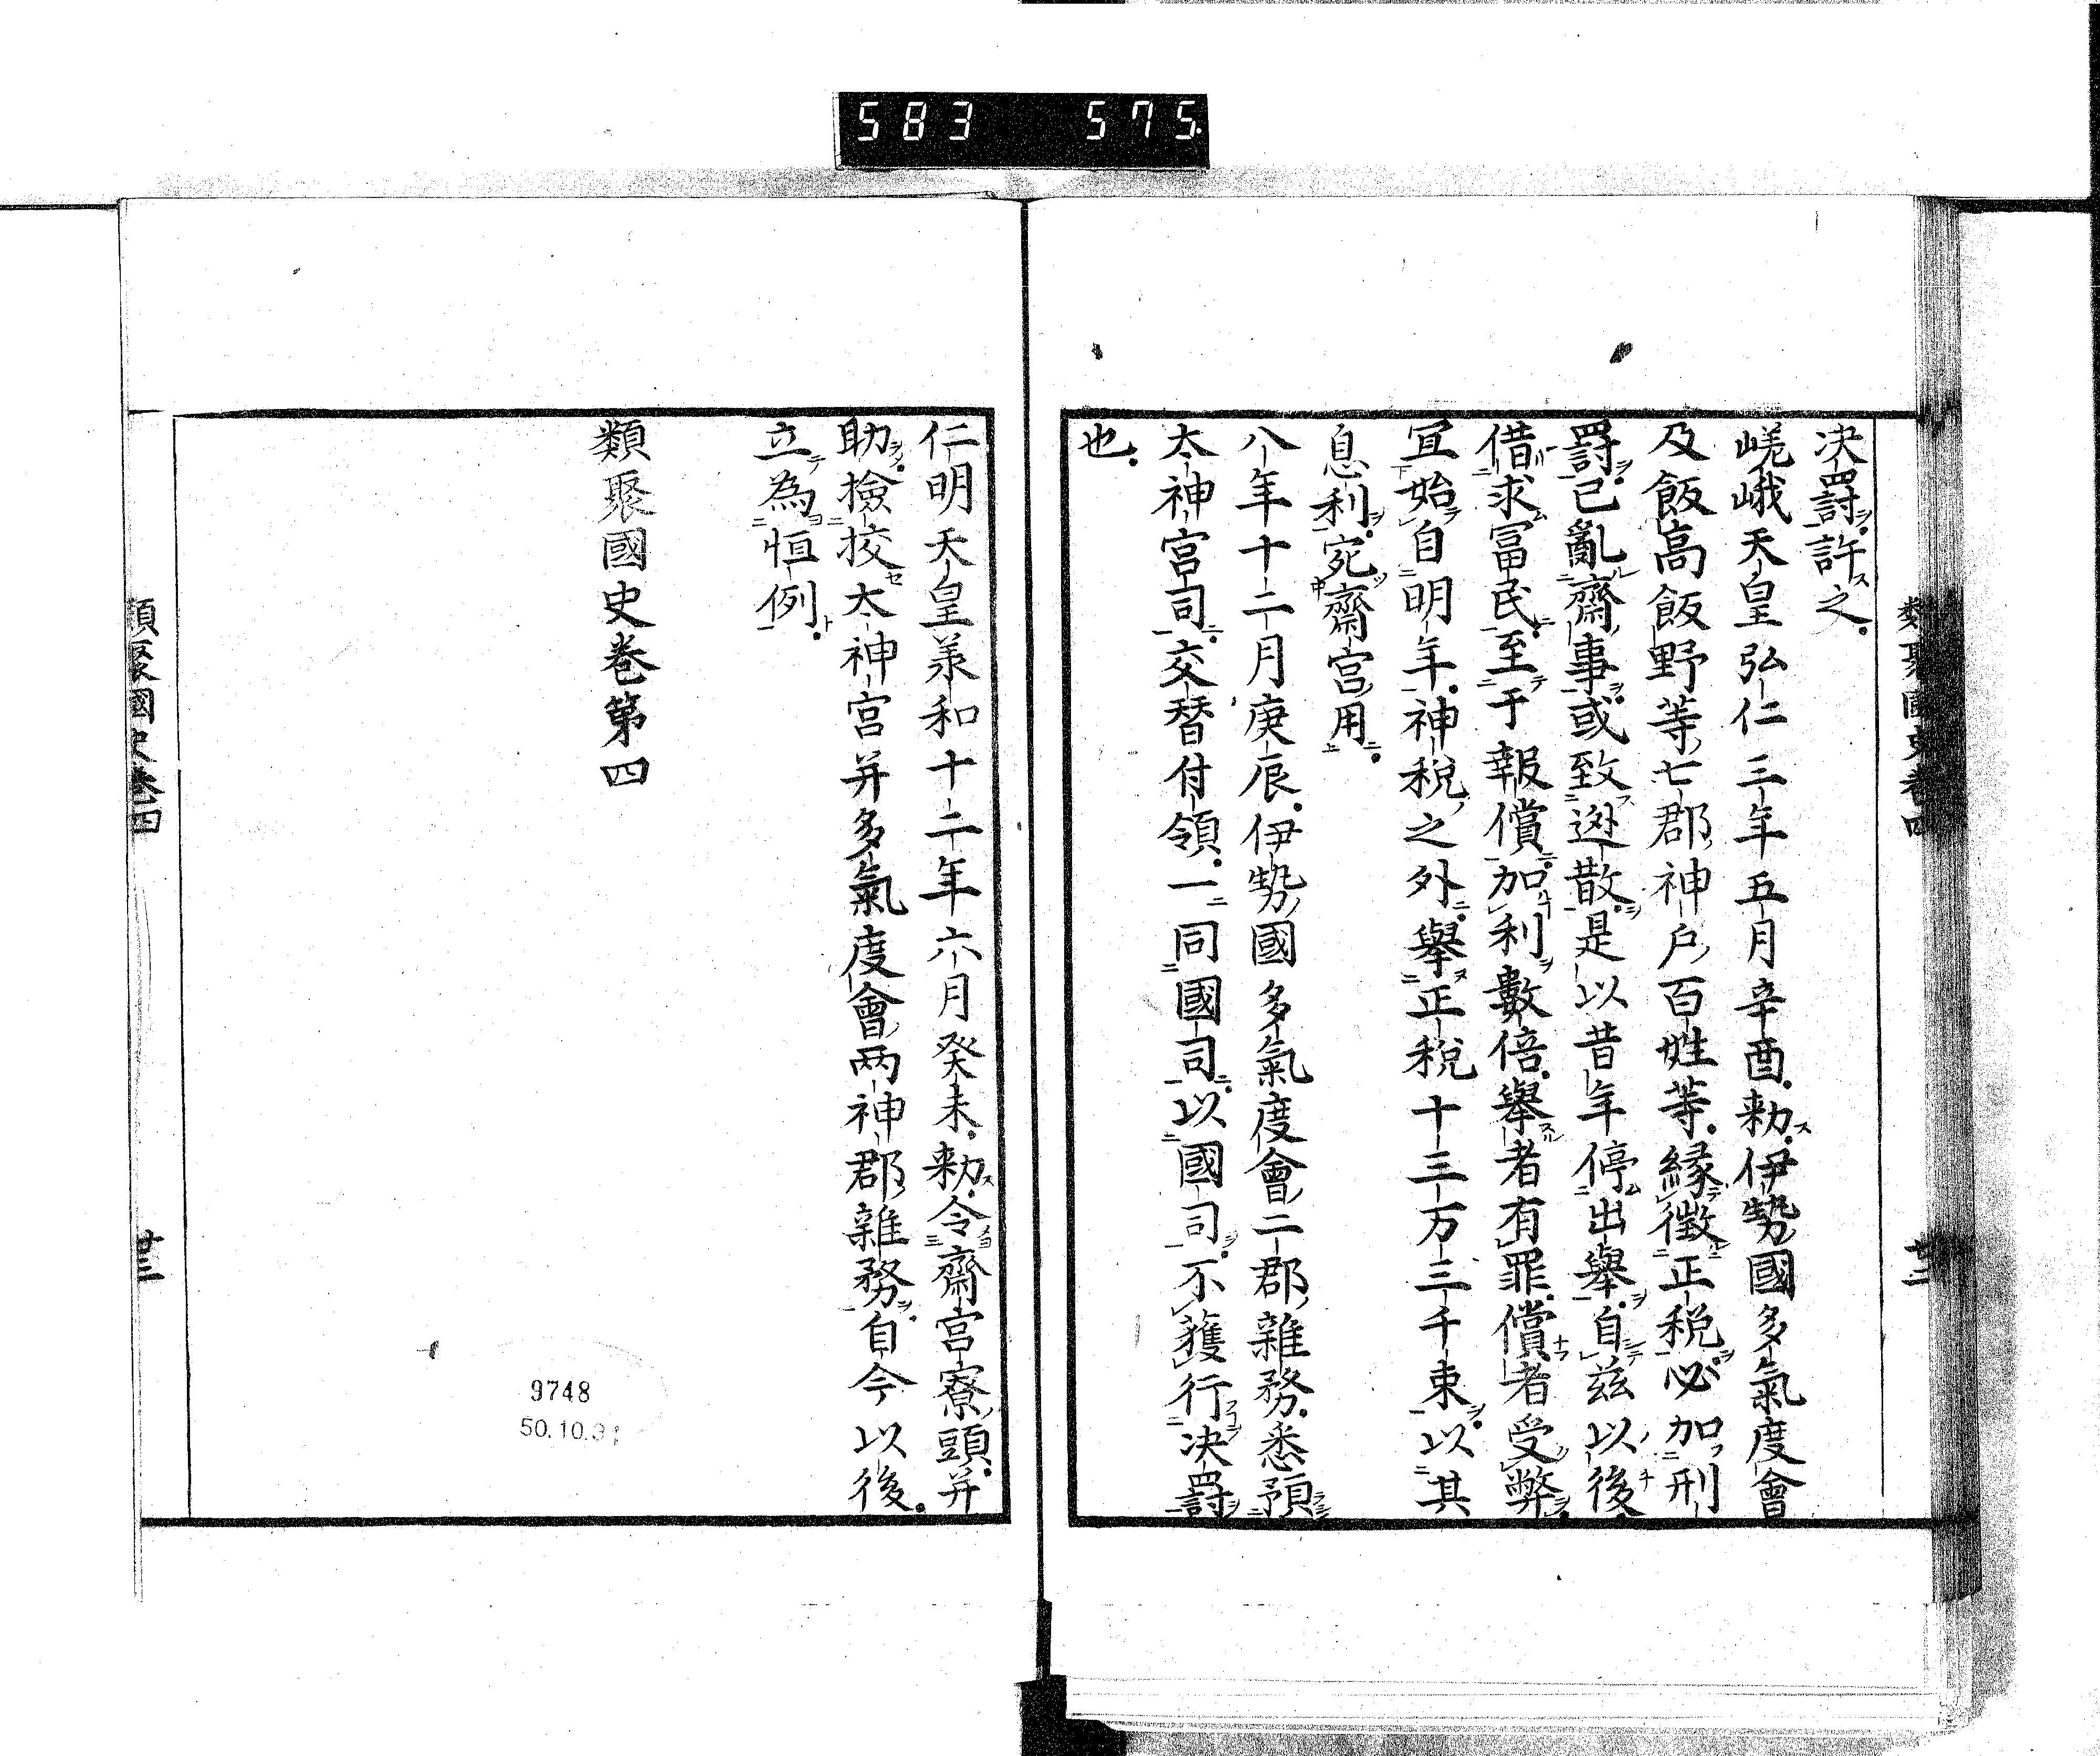 583 575
類聚國史卷四
決罸許之
嵯峨天皇弘仁三年五月辛酉勅伊勢國多氣度會
及飯高飯野等七郡神戶百姓等緣徵正稅必加刑
罸已亂齋事或致逃散是以昔年停出舉自玆以後
借求冨民至于報償加利數倍舉者有罪償者受弊
宜始自明年神稅之外舉正稅十三万三千束以其
息利宛齋宮用
八年十二月庚辰伊勢國多氣度會二郡雜務悉預
太神宮司交替付領一同國司以國司不獲行決罸
也
仁明天皇羕和十二年六月癸未勅令齋宮寮頭并
助撿挍太神宮并多氣度會兩神郡雜務自今以後
立為恒例
類聚國史卷第四
類聚國史卷四
廿三
9748
50.10.31